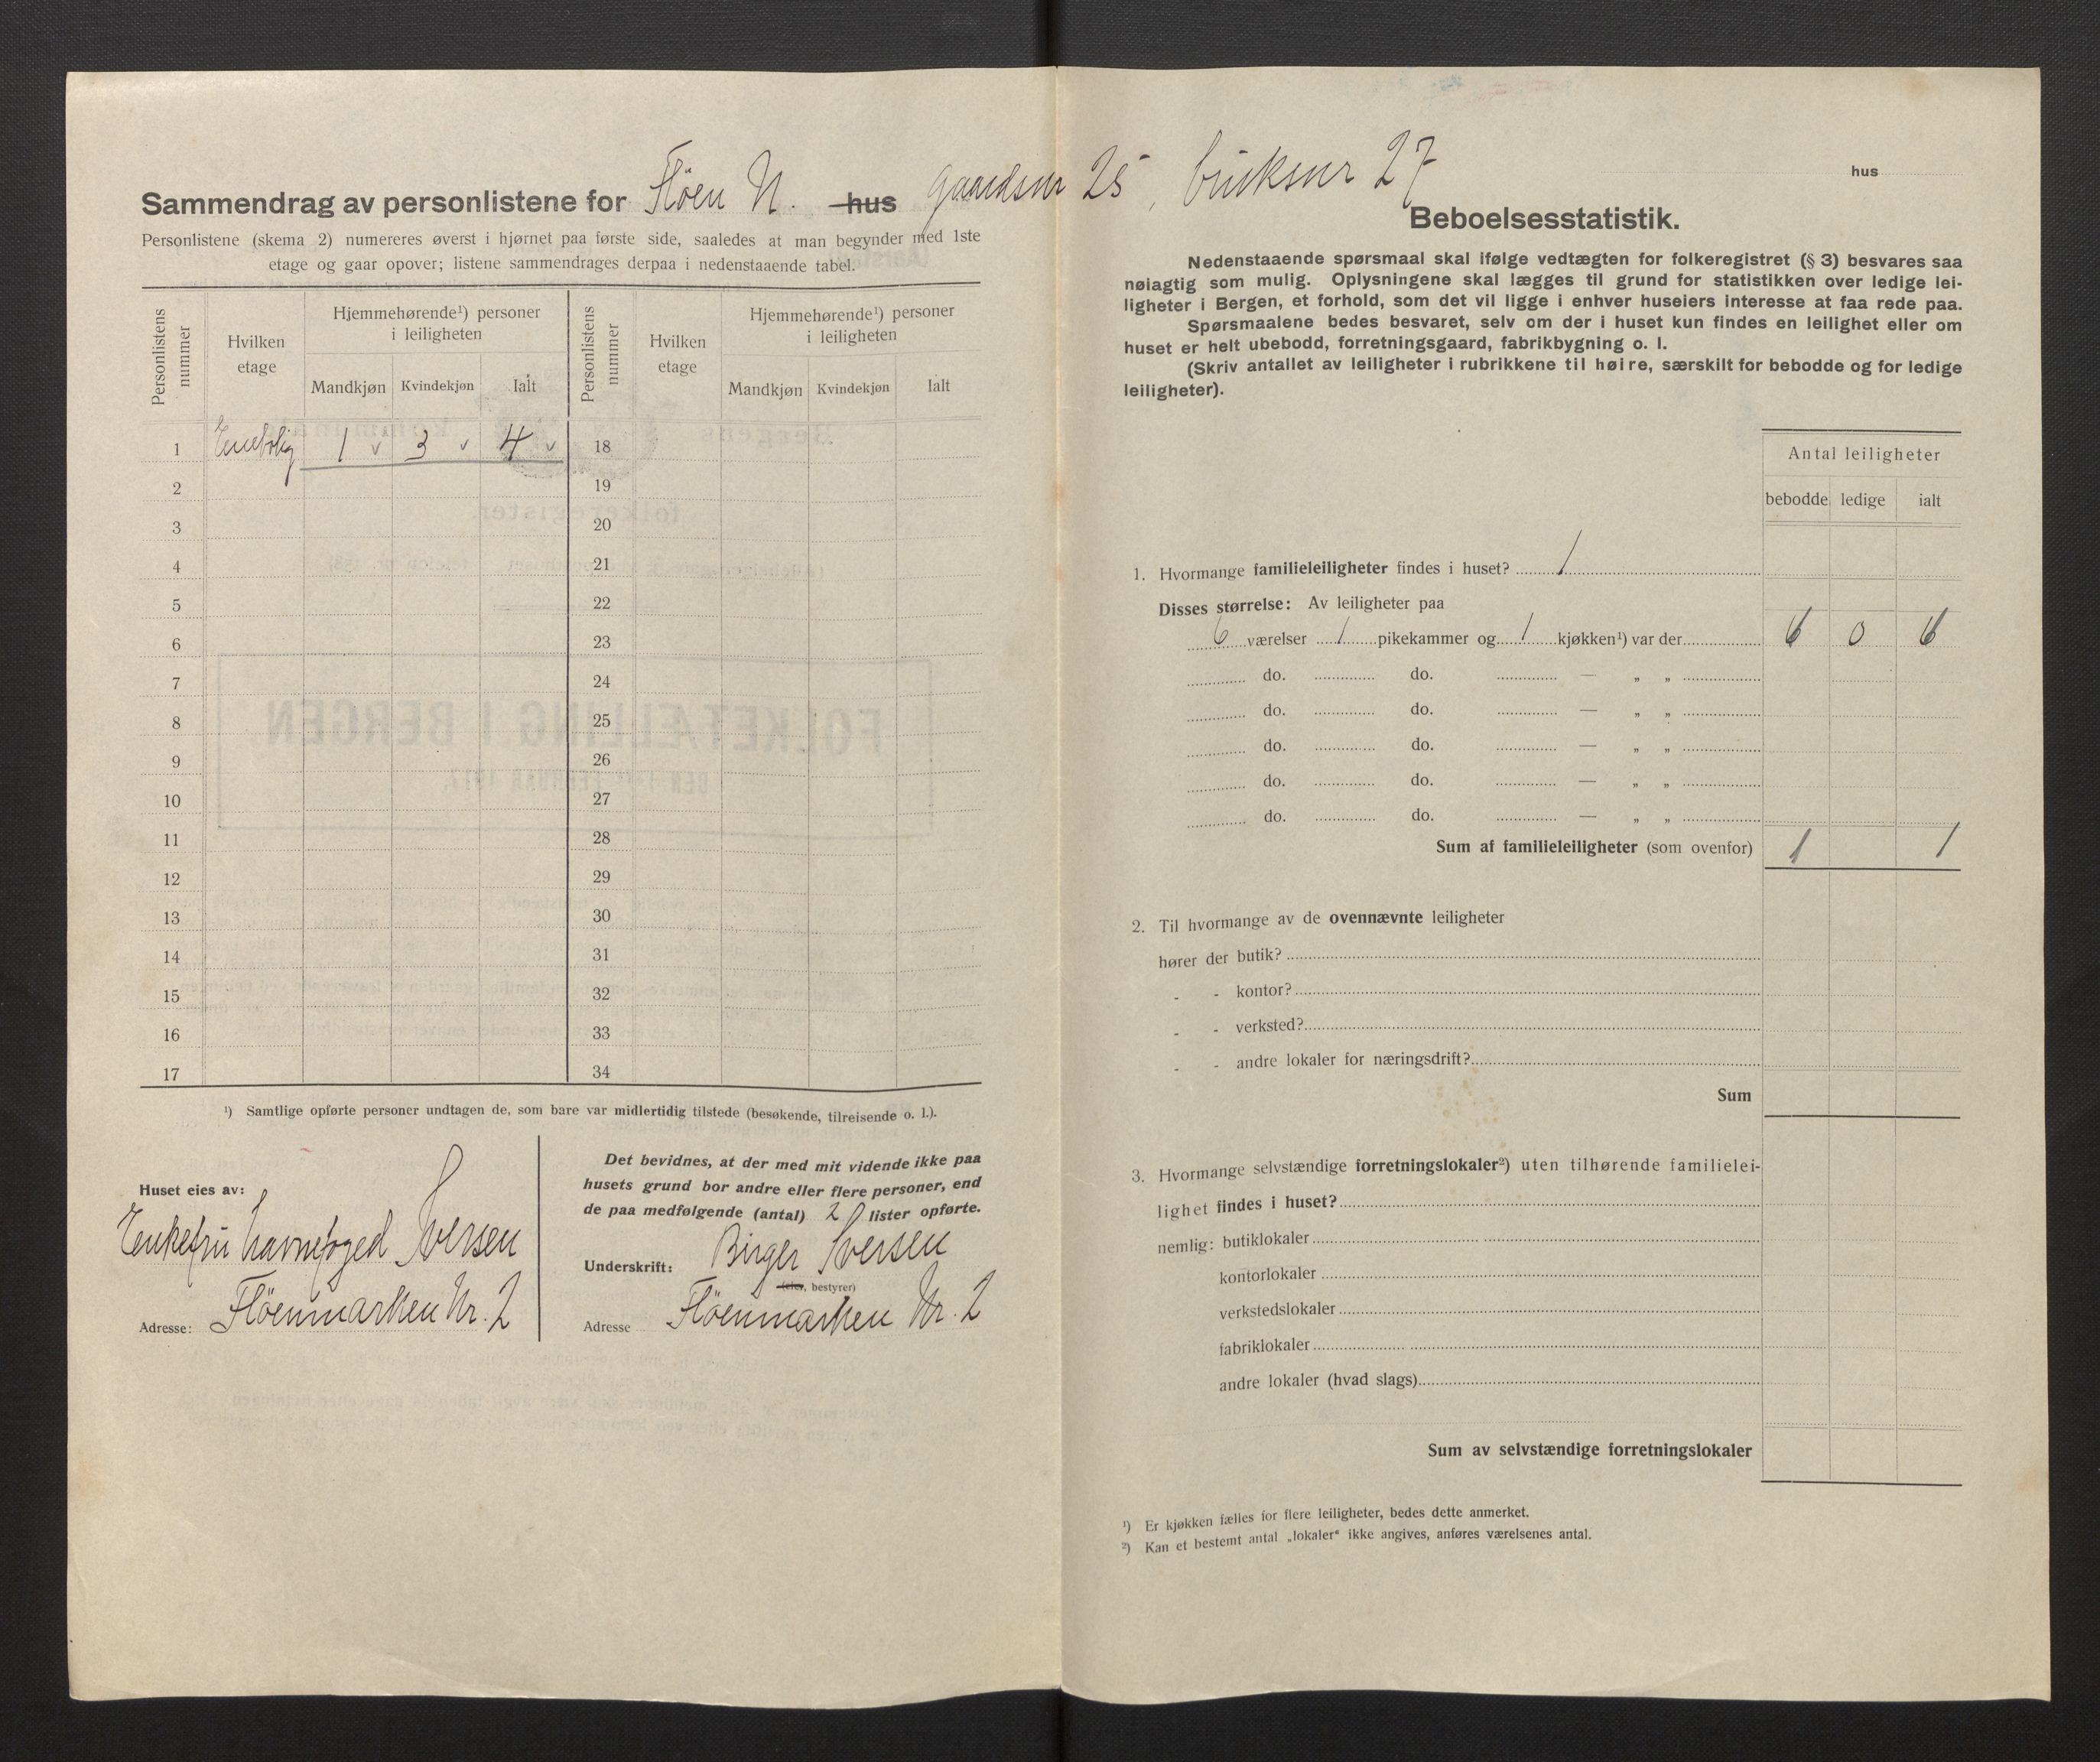 Sammendrag av personlistene for Fløen N. hus gaardsnr 25, bruksnr 27
Personlistene (skema 2) numereres øverst i hjørnet paa første side, saaledes at man begynder med 1ste
etage og gaar opover; listene sammendrages derpaa i nedenstaaende tabel.
Personlistens nummer
Hvilken etage
Hjemmehørende¹) personer i leiligheten
Mandkjøn Kvindekjøn Ialt
Personlistens nummer
Hvilken etage
Hjemmehørende¹) personer i leiligheten
Mandkjøn Kvindekjøn Ialt
1 Enebolig 1 v 3 v 4 v 18
2 19
3 20
4 21
5 22
6 23
7 24
8 25
9 26
10 27
11 28
12 29
13 30
14 31
15 32
16 33
17 34
¹) Samtlige opførte personer undtagen de, som bare var midlertidig tilstede (besøkende, tilreisende o. l.).
Huset eies av:
Enkefru havnefoged Iversen
Adresse: Fløenmarken Nr. 2
Det bevidnes, at der med mit vidende ikke paa
husets grund bor andre eller flere personer, end
de paa medfølgende (antal) lister opførte.
Underskrift: Birger Iversen
(eier, bestyrer)
Adresse Fløenmarken Nr. 2
hus
Beboelsesstatistik.
Nedenstaaende spørsmaal skal ifølge vedtægten for folkeregistret (§ 3) besvares saa
nøiagtig som mulig. Oplysningene skal lægges til grund for statistikken over ledige lei-
ligheter i Bergen, et forhold, som det vil ligge i enhver huseiers interesse at faa rede paa.
Spørsmaalene bedes besvaret, selv om der i huset kun findes en leilighet eller om
huset er helt ubebodd, forretningsgaard, fabrikbygning o. l.
(Skriv antallet av leiligheter i rubrikkene til høire, særskilt for bebodde og for ledige
leiligheter).
Antal leiligheter
bebodde ledige ialt
1. Hvormange familieleiligheter findes i huset? 1
Disses størrelse: Av leiligheter paa
6 værelser 1 pikekammer og 1 kjøkken¹) var der 6 0 6
do. do. — „ „
do. do. — „ „
do. do. — „ „
do. do. — „ „
do. do. — „ „
Sum af familieleiligheter (som ovenfor) 1 1
2. Til hvormange av de ovennævnte leiligheter
hører der butik?
- - kontor?
- - verksted?
- - andre lokaler for næringsdrift?
Sum
3. Hvormange selvstændige forretningslokaler²) uten tilhørende familielei-
lighet findes i huset?
nemlig: butiklokaler
kontorlokaler
verkstedslokaler
fabriklokaler
andre lokaler (hvad slags)
Sum av selvstændige forretningslokaler
¹) Er kjøkken fælles for flere leiligheter, bedes dette anmerket.
²) Kan et bestemt antal „lokaler“ ikke angives, anføres værelsenes antal.